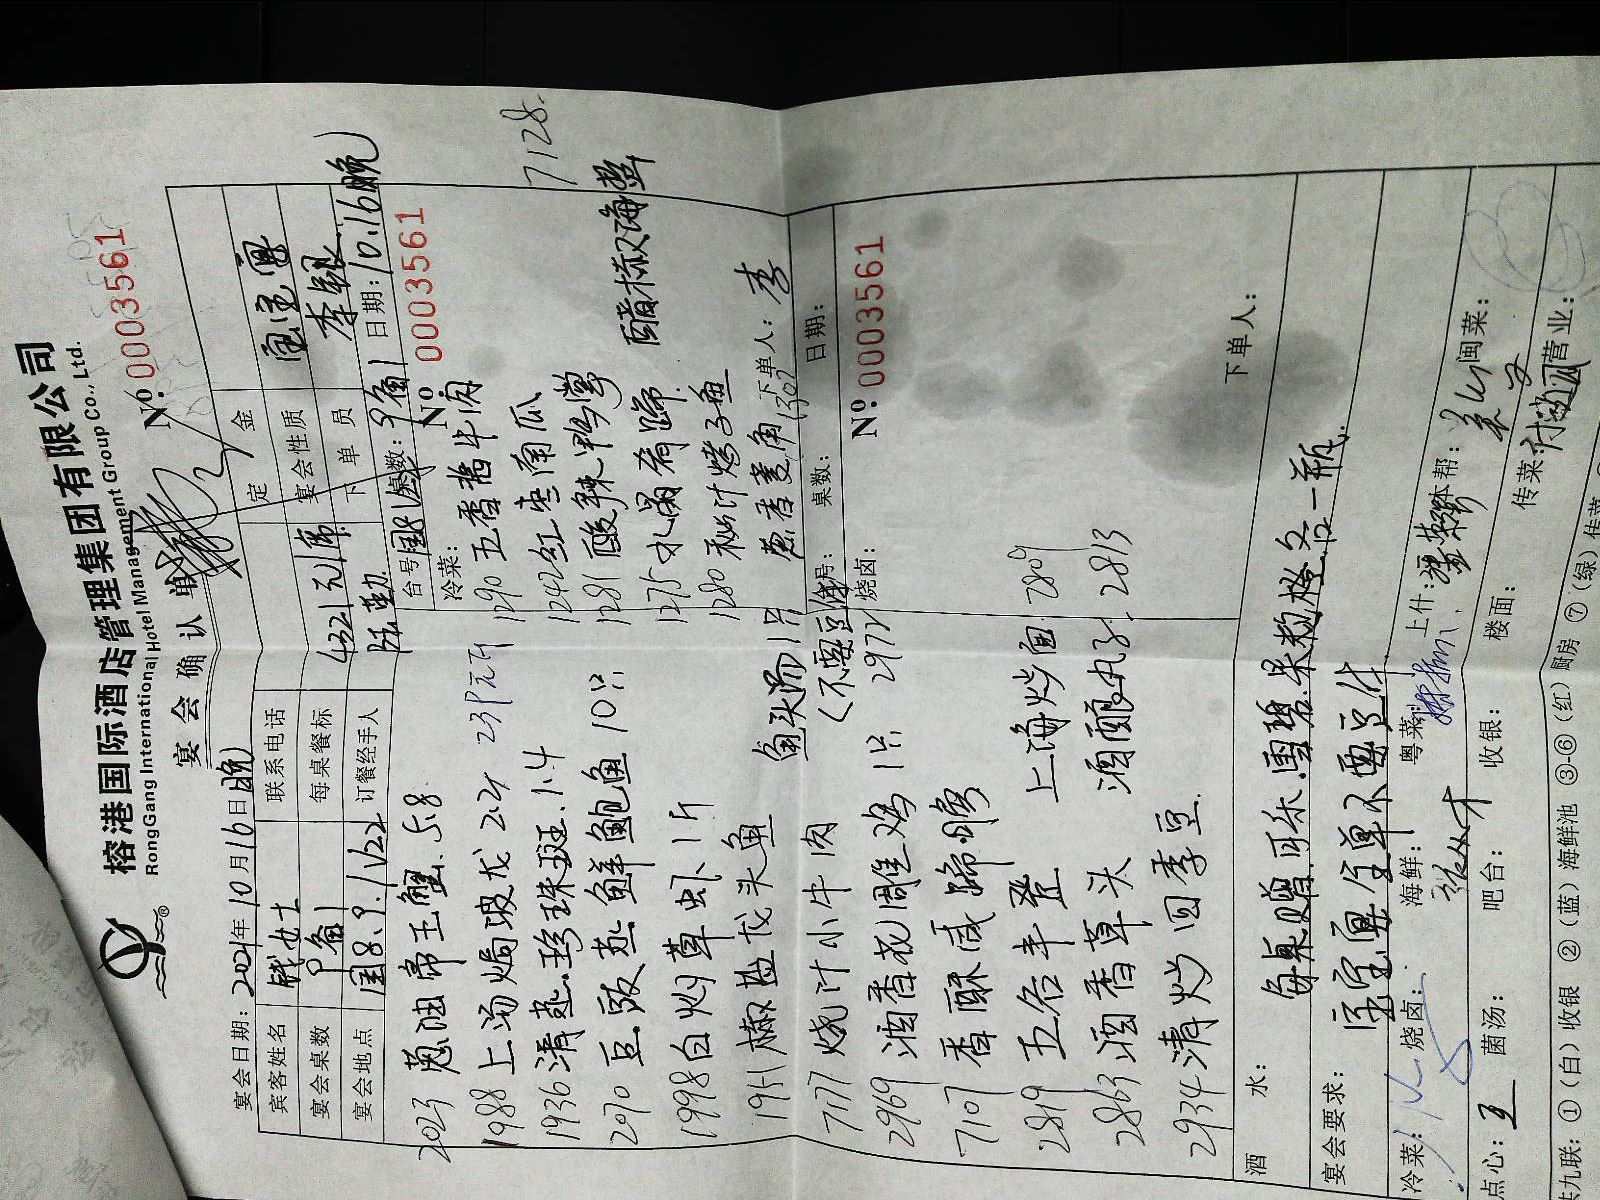 榕港国际酒店管理集团有限公司
RongGang International Hotel Management Group Co., Ltd.
宴会确认单
№:0003561
宴会日期: 2021年10月16日晚
定金
宾客姓名 女士
联系电话
宴会性质 宝宝宴
宴会桌数
每桌餐标 4321元/席
下单员 李银
宴会地点 国8.9.1122
订餐经手人
台号 国8 桌数:
日期: 10.16晚
№: 0003561
冷菜:
7128.
2023 葱油帝王蟹 5.8
1290 五香酱牛肉
1988 上汤焗波龙 2.4 238元/斤
1242 红枣南瓜
1936 清蒸珍珠斑 1.4
1281 酸辣掌
2070 豆豉蒸鲜鲍鱼 10只
1275 水晶肴蹄
醋椒海蜇
1998 白灼草虾 1斤
1280 秘汁烤子鱼
1951 椒盐龙头鱼
葱香 1302
下单人: 李
鱼头 1只
(不要豆
7177 烧汁小牛肉
台号:
桌数:
日期:
烧卤:
№: 0003561
2969 酒香花雕鸡 1只 2972
7107 香酥咸蹄髈
2819 五谷丰登
上海炒面 2809
2863 酒香草头
酒酿丸子 2813
2934 清炒四季豆
下单人:
酒水:
每桌赠可乐.雪碧.果粒橙各一瓶.
宴会要求:
宝宝宴全单不要豆
冷菜:
烧卤:
海鲜:
粤菜:
上什:
本帮:
闽菜:
点心: 王
菌汤:
吧台:
收银:
楼面:
传菜:
营业:
共九联: ①(白)收银 ②(蓝)海鲜池 ③-⑥(红)厨房 ⑦(绿)传菜